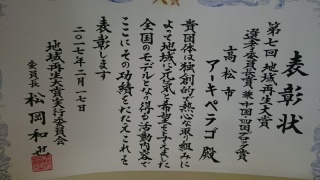 表彰状
第七回 地域再生大賞
選考委員長賞
高松市
アーキペラゴ 殿
貴団体は独創的で熱心な取り組みに
よって地域に元気と希望を与えました
全国のモデルとなり得る活動内容で
ここにその功績をたたえこれを
表彰します
二〇一七年二月一七日
地域再生大賞実行委員会
委員長 松岡和